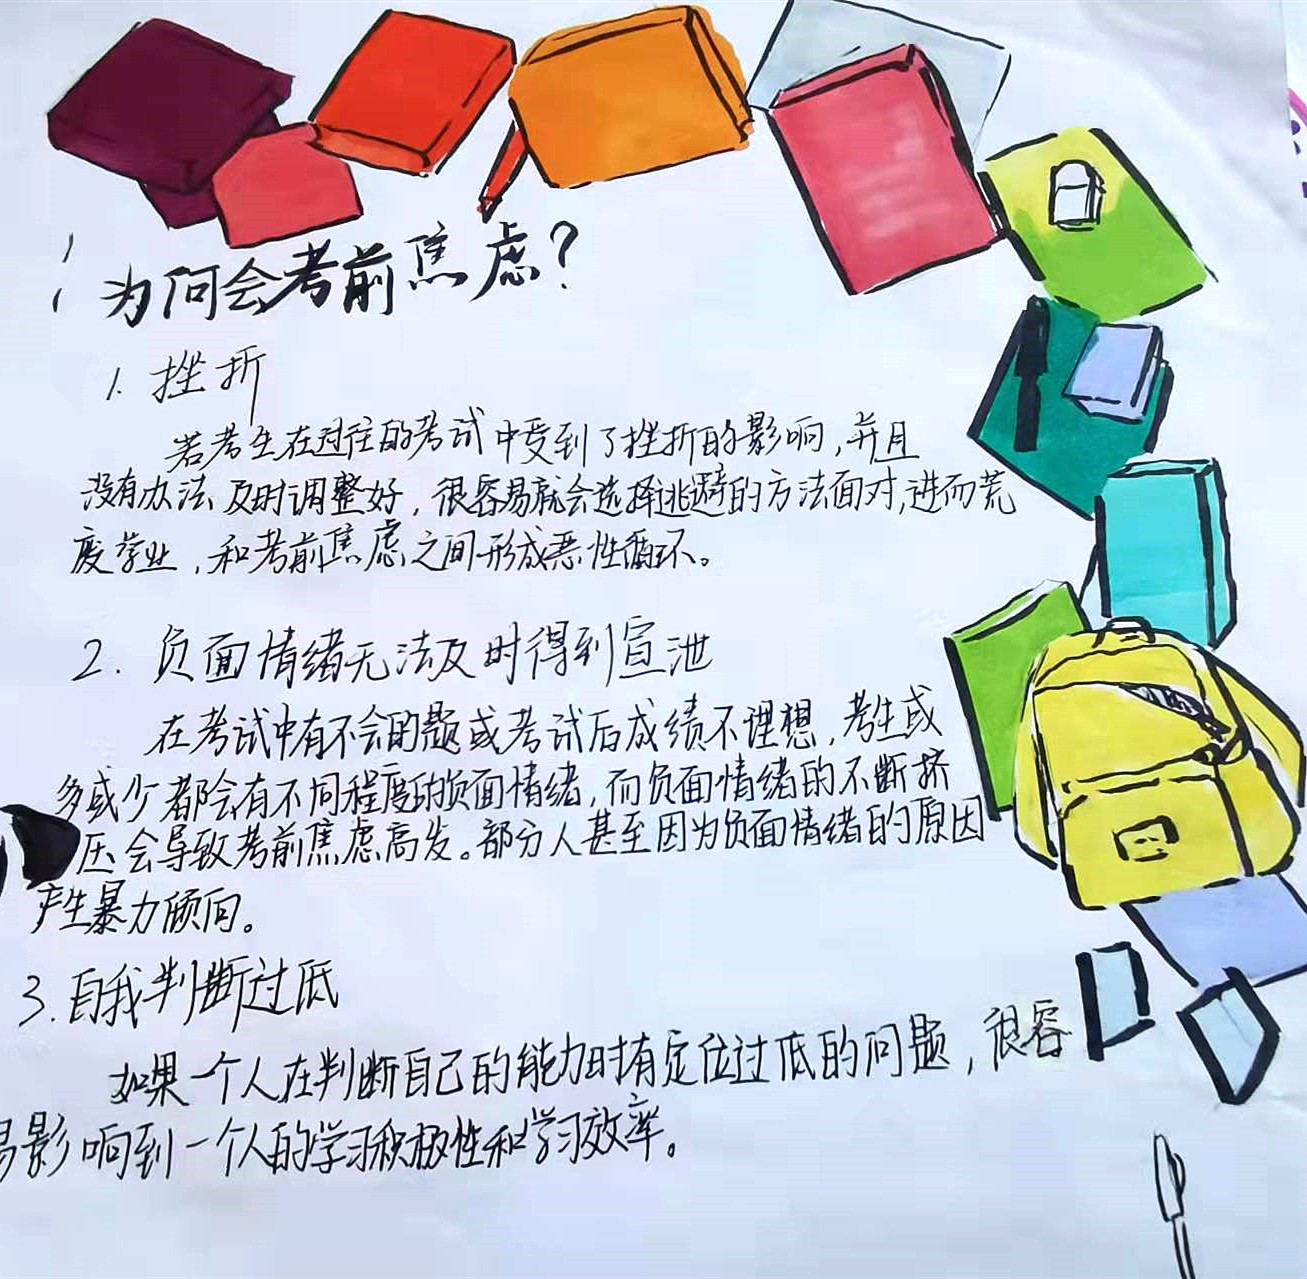 为何会考前焦虑?
1. 挫折
若考生在过往的考试中受到了挫折的影响,并且
没有办法及时调整好,很容易就会选择逃避的方法面对,进而荒
废学业,和考前焦虑之间形成恶性循环。
2. 负面情绪无法及时得到宣泄
在考试中有不会的题或考试后成绩不理想,考生或
多或少都会有不同程度的负面情绪,而负面情绪的不断挤
压会导致考前焦虑高发。部分人甚至因为负面情绪的原因
产生暴力倾向。
3.自我判断过低
如果一个人在判断自己的能力时有定位过低的问题,很容
易影响到一个人的学习积极性和学习效率。